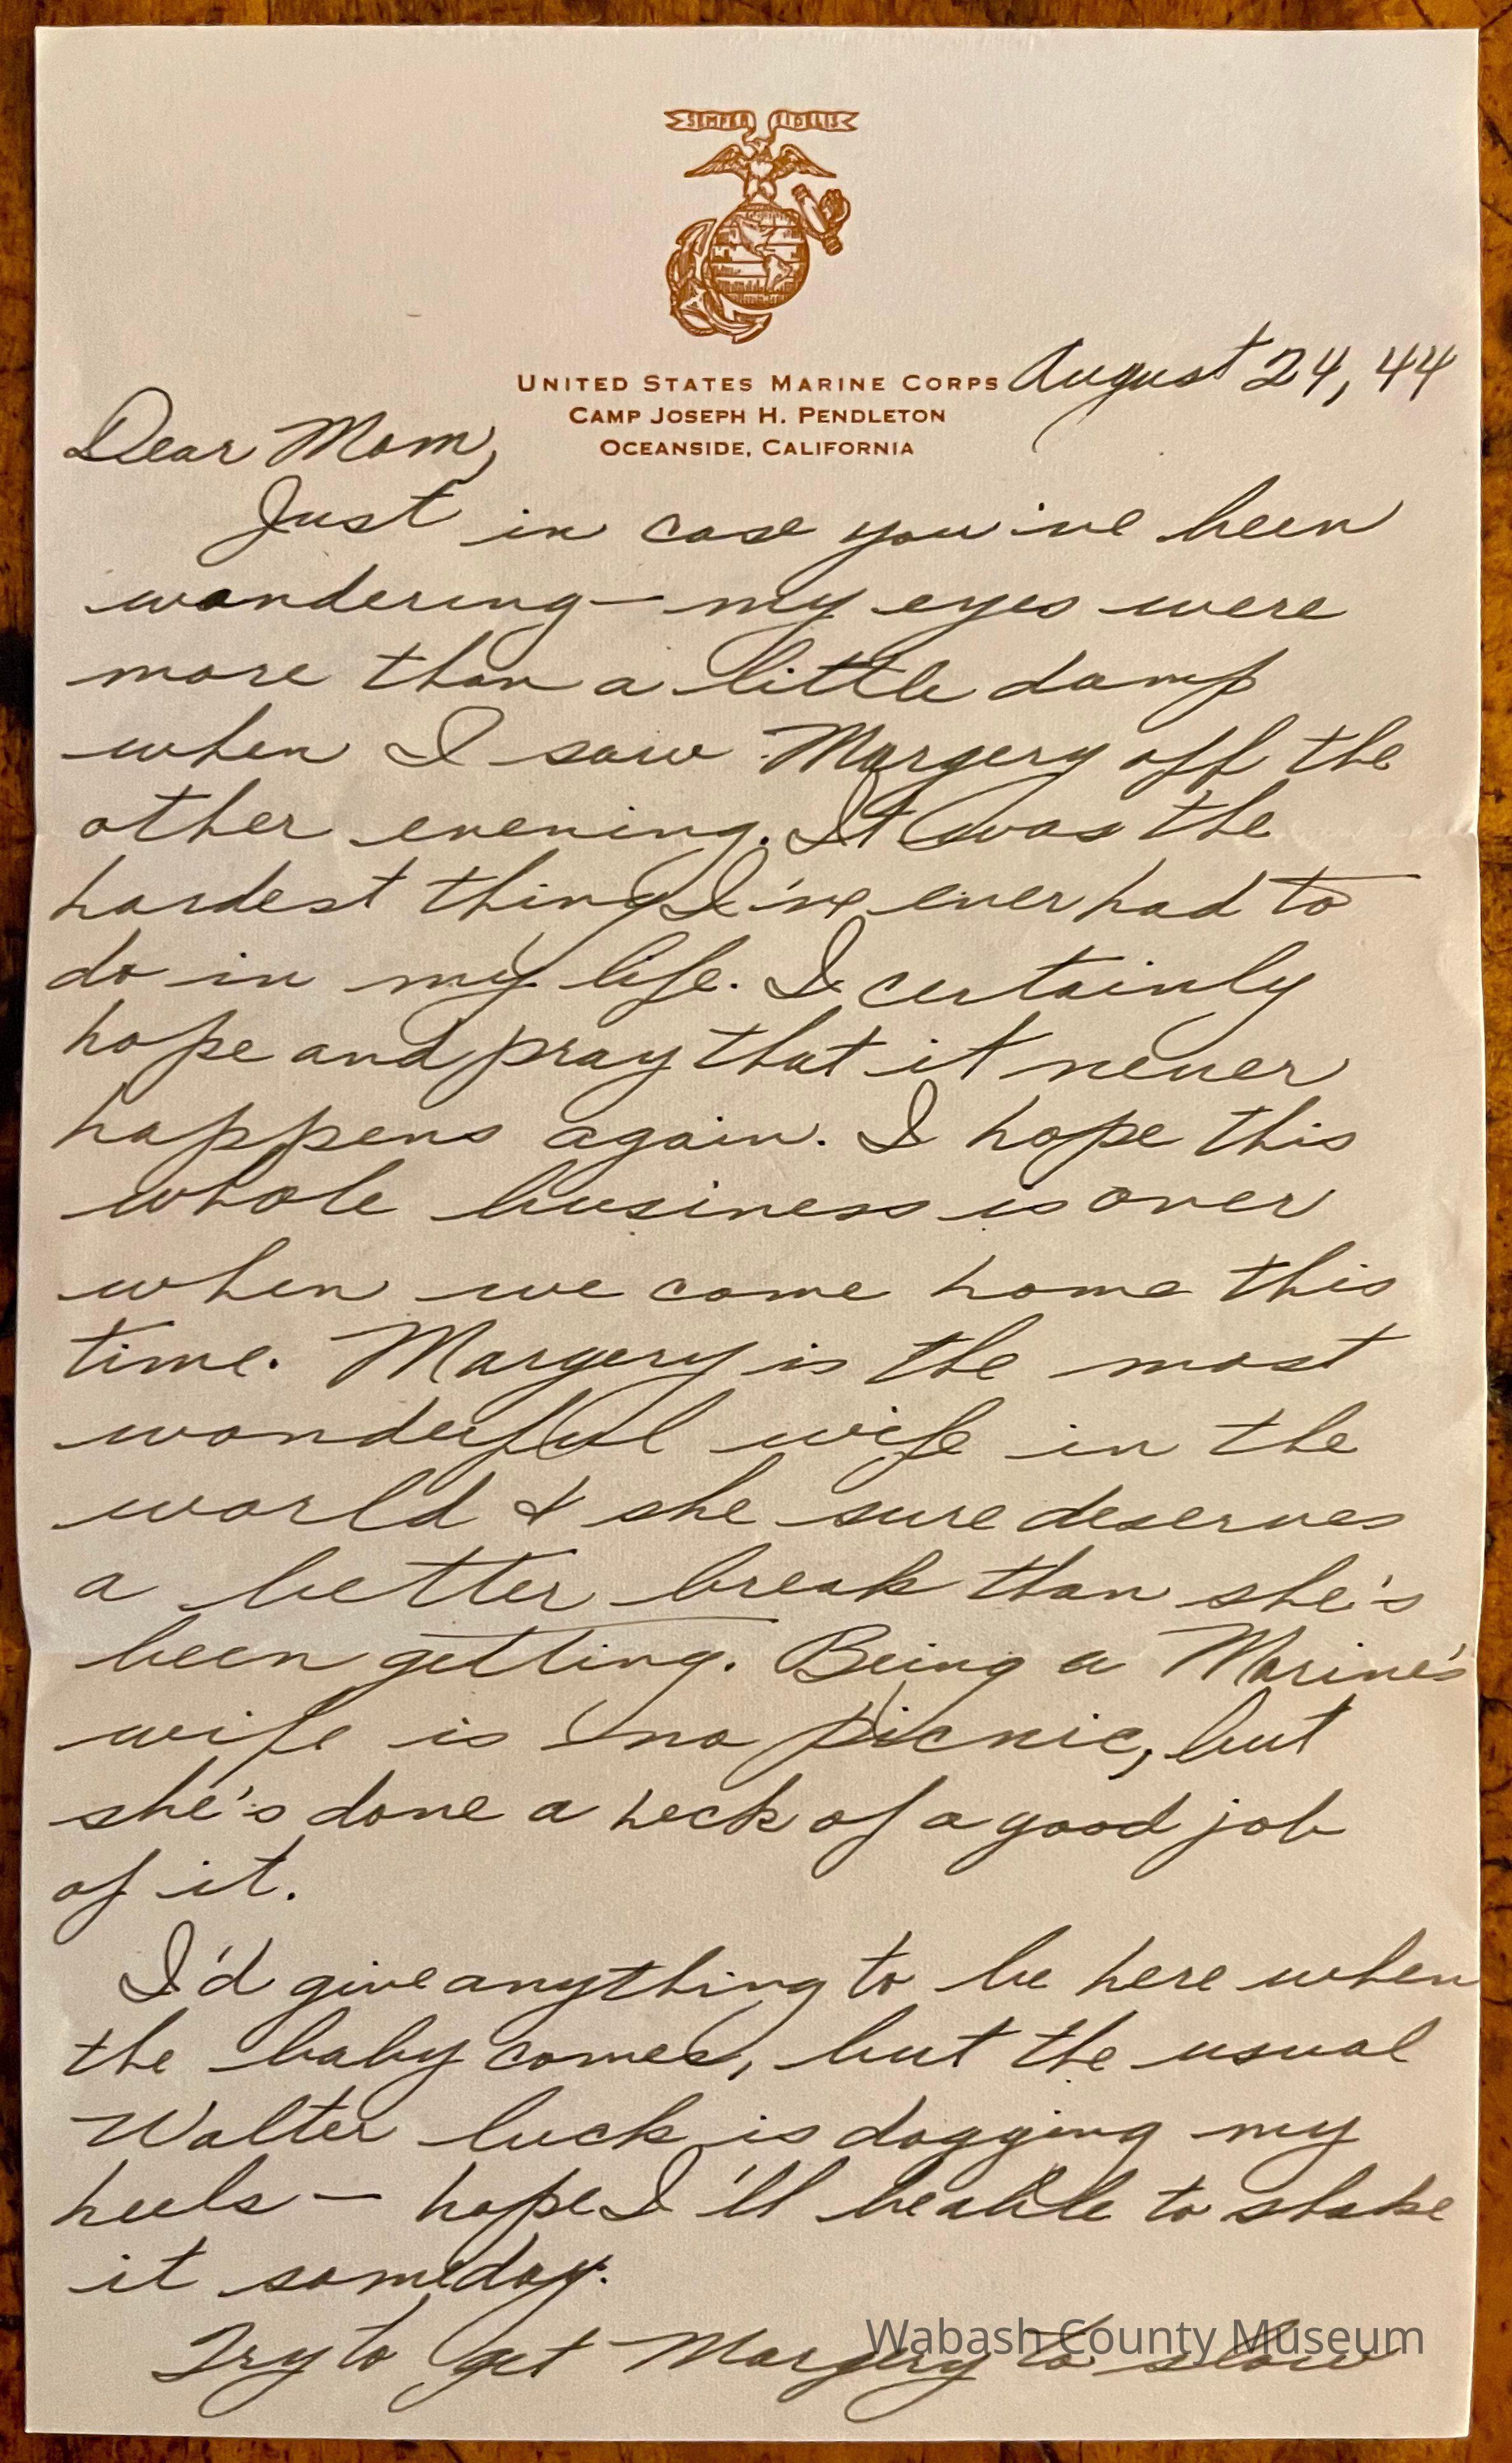 SEMPER FIDELIS
UNITED STATES MARINE CORPS
CAMP JOSEPH H. PENDLETON
OCEANSIDE, CALIFORNIA
August 24, 44
Dear Mom,
Just in case you've been
wondering — my eyes were
more than a little damp
when I saw Margery off the
other evening. It was the
hardest thing I've ever had to
do in my life. I certainly
hope and pray that it never
happens again. I hope this
whole business is over
when we come home this
time. Margery is the most
wonderful wife in the
world & she sure deserves
a better break than she's
been getting. Being a Marine's
wife is no picnic, but
she's done a heck of a good job
of it.
I'd give anything to be here when
the baby comes, but the usual
Walter luck is dogging my
heels — hope I'll be able to shake
it someday.
Try to get Margery to slow
Wabash County Museum